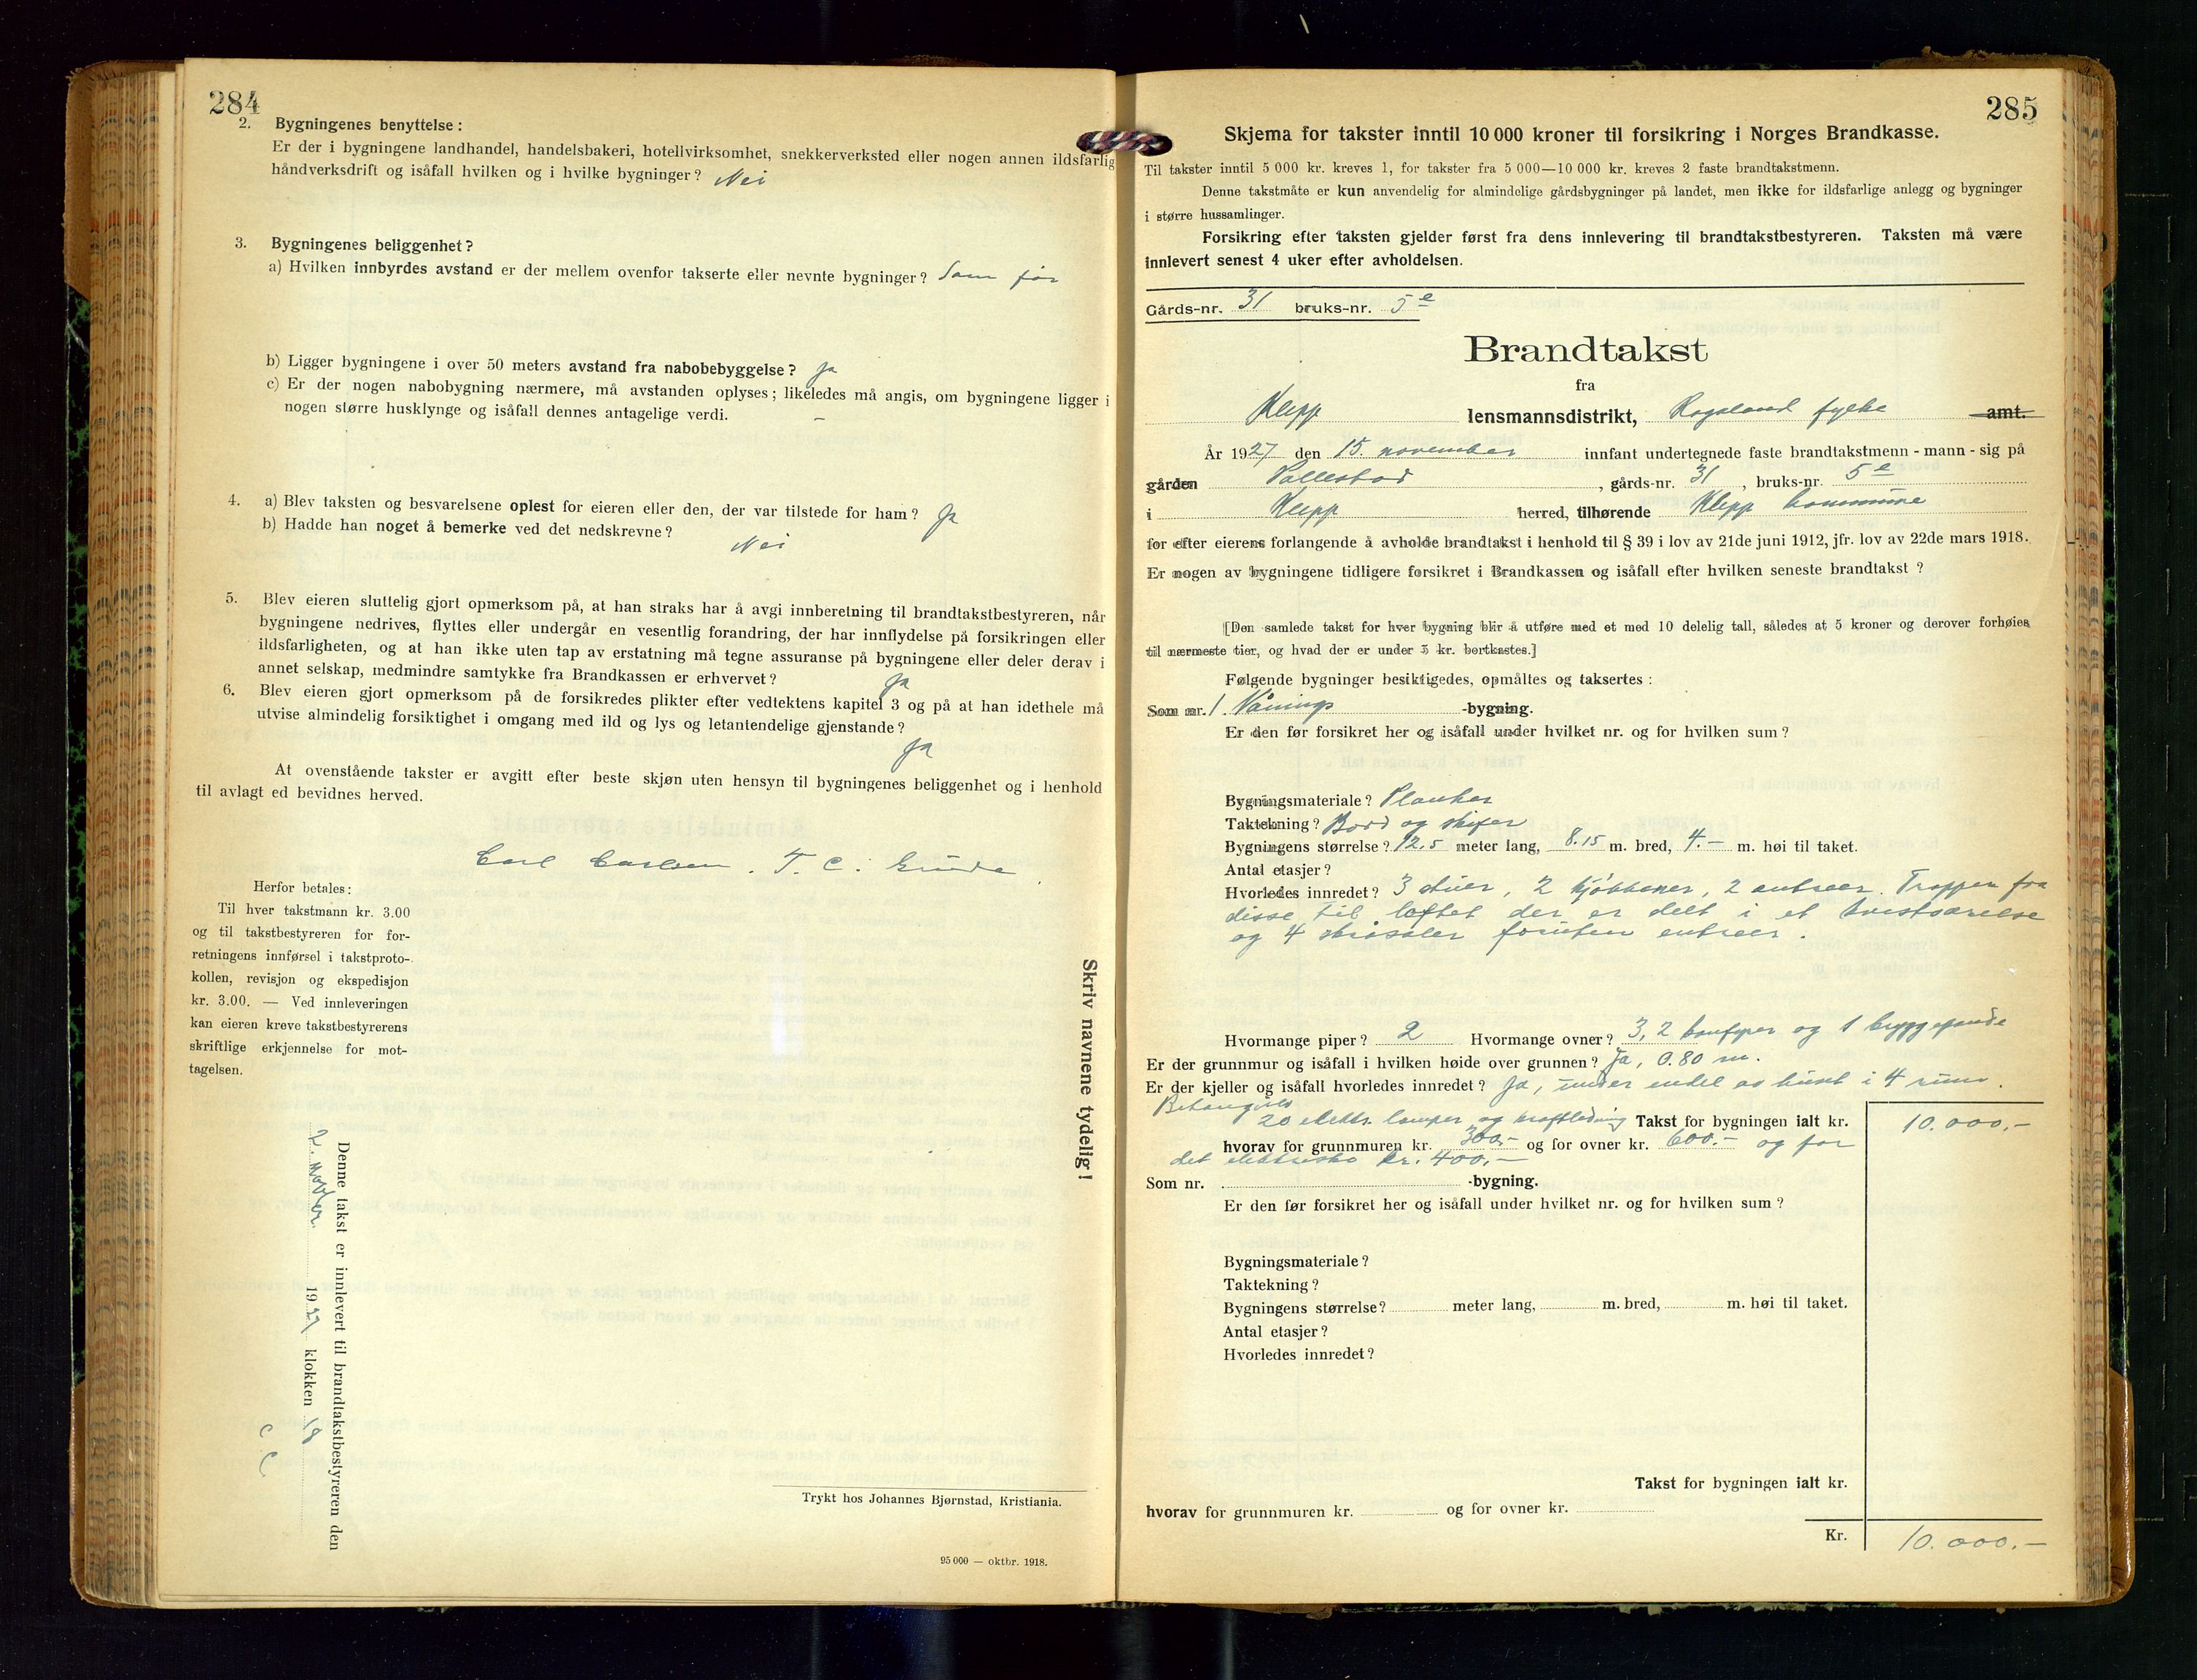 284
2. Bygningenes benyttelse :
Er der i bygningene landhandel, handelsbakeri, hotellvirksomhet, snekkerverksted eller nogen annen ildsfarlig
håndverksdrift og isåfall hvilken og i hvilke bygninger? Nei
3. Bygningenes beliggenhet?
a) Hvilken innbyrdes avstand er der mellem ovenfor takserte eller nevnte bygninger? Som før
b) Ligger bygningene i over 50 meters avstand fra nabobebyggelse? Ja
c) Er der nogen nabobygning nærmere, må avstanden oplyses; likeledes må angis, om bygningene ligger i
nogen større husklynge og isåfall dennes antagelige verdi. –
4. a) Blev taksten og besvarelsene oplest for eieren eller den, der var tilstede for ham? Ja
b) Hadde han noget å bemerke ved det nedskrevne?
Nei
5. Blev eieren sluttelig gjort opmerksom på, at han straks har å avgi innberetning til brandtakstbestyreren, når
bygningene nedrives, flyttes eller undergår en vesentlig forandring, der har innflydelse på forsikringen eller
ildsfarligheten, og at han ikke uten tap av erstatning må tegne assuranse på bygningene eller deler derav i
annet selskap, medmindre samtykke fra Brandkassen er erhvervet? Ja
6. Blev eieren gjort opmerksom på de forsikredes plikter efter vedtektens kapitel 3 og på at han idethele må
utvise almindelig forsiktighet i omgang med ild og lys og letantendelige gjenstande?
Ja
At ovenstående takster er avgitt efter beste skjøn uten hensyn til bygningenes beliggenhet og i henhold
til avlagt ed bevidnes herved.
Carl Carlsen. T. C. Grude.
Herfor betales:
Til hver takstmann kr. 3.00
og til takstbestyreren for for-
retningens innførsel i takstproto-
kollen, revisjon og ekspedisjon
kr. 3.00. — Ved innleveringen
kan eieren kreve takstbestyrerens
skriftlige erkjennelse for mot-
tagelsen.
Skriv navnene tydelig!
Denne takst er innlevert til brandtakstbestyreren den
1927 klokken 18
C C
Trykt hos Johannes Bjørnstad, Kristiania.
95 000 — oktbr. 1918.
285
Skjema for takster inntil 10 000 kroner til forsikring i Norges Brandkasse.
Til takster inntil 5 000 kr. kreves 1, for takster fra 5 000—10 000 kr. kreves 2 faste brandtakstmenn.
Denne takstmåte er kun anvendelig for almindelige gårdsbygninger på landet, men ikke for ildsfarlige anlegg og bygninger
i større hussamlinger.
Forsikring efter taksten gjelder først fra dens innlevering til brandtakstbestyreren. Taksten må være
innlevert senest 4 uker efter avholdelsen.
Gårds-nr. 31 bruks-nr. 5 e
Brandtakst
fra
Klepp lensmannsdistrikt, Rogaland fylke amt.
År 1927 den 15. november innfant undertegnede faste brandtakstmenn - mann - sig på
gården Vollestad, gårds-nr. 31, bruks-nr. 5 e
i Klepp herred, tilhørende Klepp kommune
for efter eierens forlangende å avholde brandtakst i henhold til § 39 i lov av 21de juni 1912, jfr. lov av 22de mars 1918.
Er nogen av bygningene tidligere forsikret i Brandkassen og isåfall efter hvilken seneste brandtakst ?
[Den samlede takst for hver bygning blir å utføre med et med 10 delelig tall, således at 5 kroner og derover forhøies
til nærmeste tier, og hvad der er under 5 kr. bortkastes.]
Følgende bygninger besiktigedes, opmåltes og taksertes :
Som nr. 1. Vånings -bygning.
Er den før forsikret her og isåfall under hvilket nr. og for hvilken sum ?
Bygningsmateriale? Planker
Taktekning? Bord og skifer
Bygningens størrelse? 12,5 meter lang, 8.15 m. bred, 4.— m. høi til taket.
Antal etasjer?
Hvorledes innredet? 3 stuer, 2 kjøkkener, 2 entreer. Trapper fra
disse til loftet der er delt i et kvistværelse
og 4 skråsaler foruten entreer.
Hvormange piper? 2 Hvormange ovner? 3, 2 komfyrer og 1 bryggepande
Er der grunnmur og isåfall i hvilken høide over grunnen? Ja, 0.80 m.
Er der kjeller og isåfall hvorledes innredet? Ja, under endel av huset i 4 rum.
20 elektr. lamper og kraftledning Takst for bygningen ialt kr. 10.000,—
hvorav for grunnmuren kr. 300,— og for ovner kr. 600.— og for
det elektriske kr. 400,—
Som nr. -bygning.
Er den før forsikret her og isåfall under hvilket nr. og for hvilken sum ?
Bygningsmateriale?
Taktekning?
Bygningens størrelse? meter lang, m. bred, m. høi til taket.
Antal etasjer?
Hvorledes innredet?
Takst for bygningen ialt kr.
hvorav for grunnmuren kr. og for ovner kr.
Kr. 10.000.—